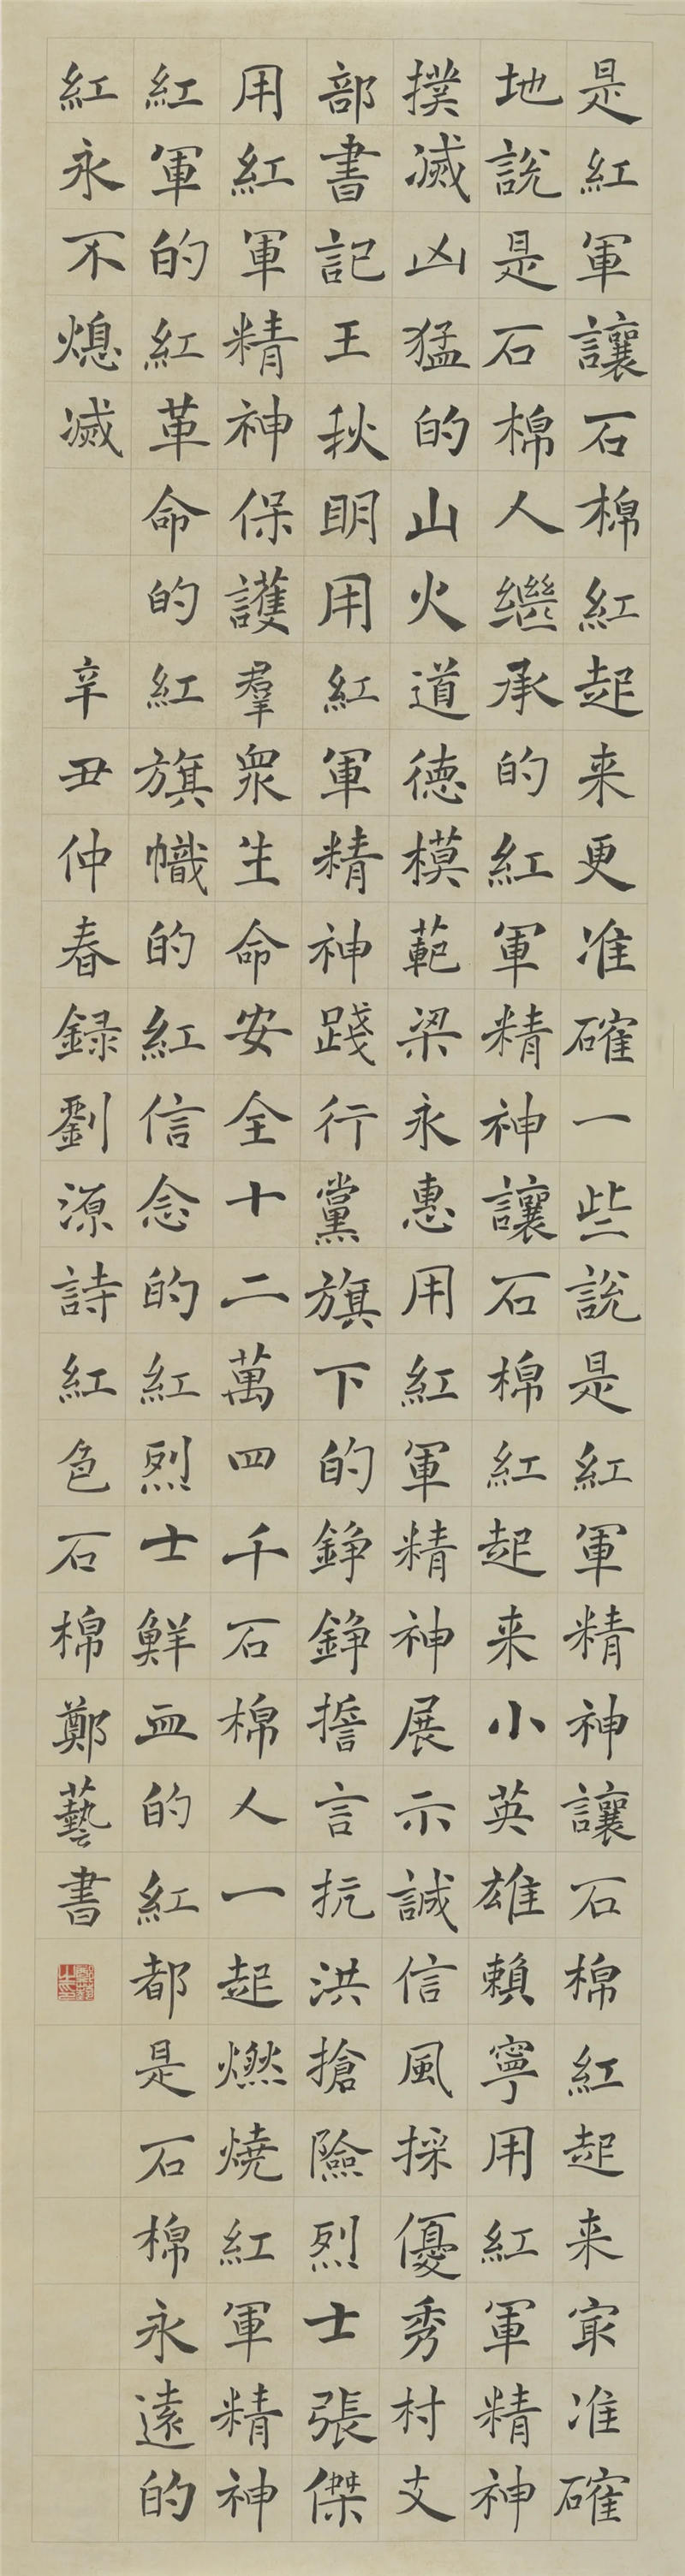 是紅軍讓石棉紅起来更准確一些說是紅軍精神讓石棉紅起来㝡准確
地說是石棉人繼承的紅軍精神讓石棉紅起来小英雄賴寧用紅軍精神
撲滅凶猛的山火道德模範梁永惠用紅軍精神展示誠信風採優秀村支
部書記王秋明用紅軍精神踐行黨旗下的錚錚誓言抗洪搶險烈士張傑
用紅軍精神保護羣衆生命安全十二萬四千石棉人一起燃燒紅軍精神
紅軍的紅革命的紅旗幟的紅信念的紅烈士鮮血的紅都是石棉永遠的
紅永不熄滅
辛丑仲春録劉源詩紅色石棉鄭藝書